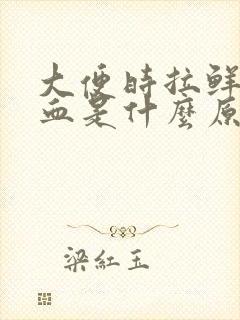 大便時拉鮮
血是什麼原
梁紅玉